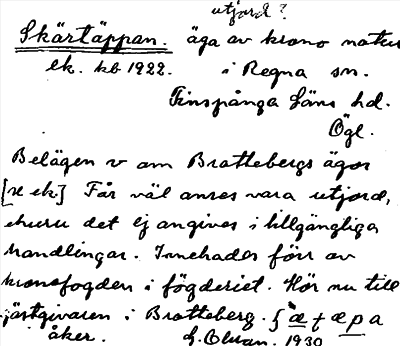 utjord?
Skärtäppan. äga av krono natur
ek. kb 1922. i Regna sn.
Finspånga läns hd.
Ögl.
Belägen v om Brattebergs ägor
[se ek] Får väl anses vara utjord,
ehuru det ej angives i tillgängliga
handlingar. Innehades förr av
kronofogden i fögderiet. Hör nu till
gästgivaren i Bratteberg.
åker. 1930